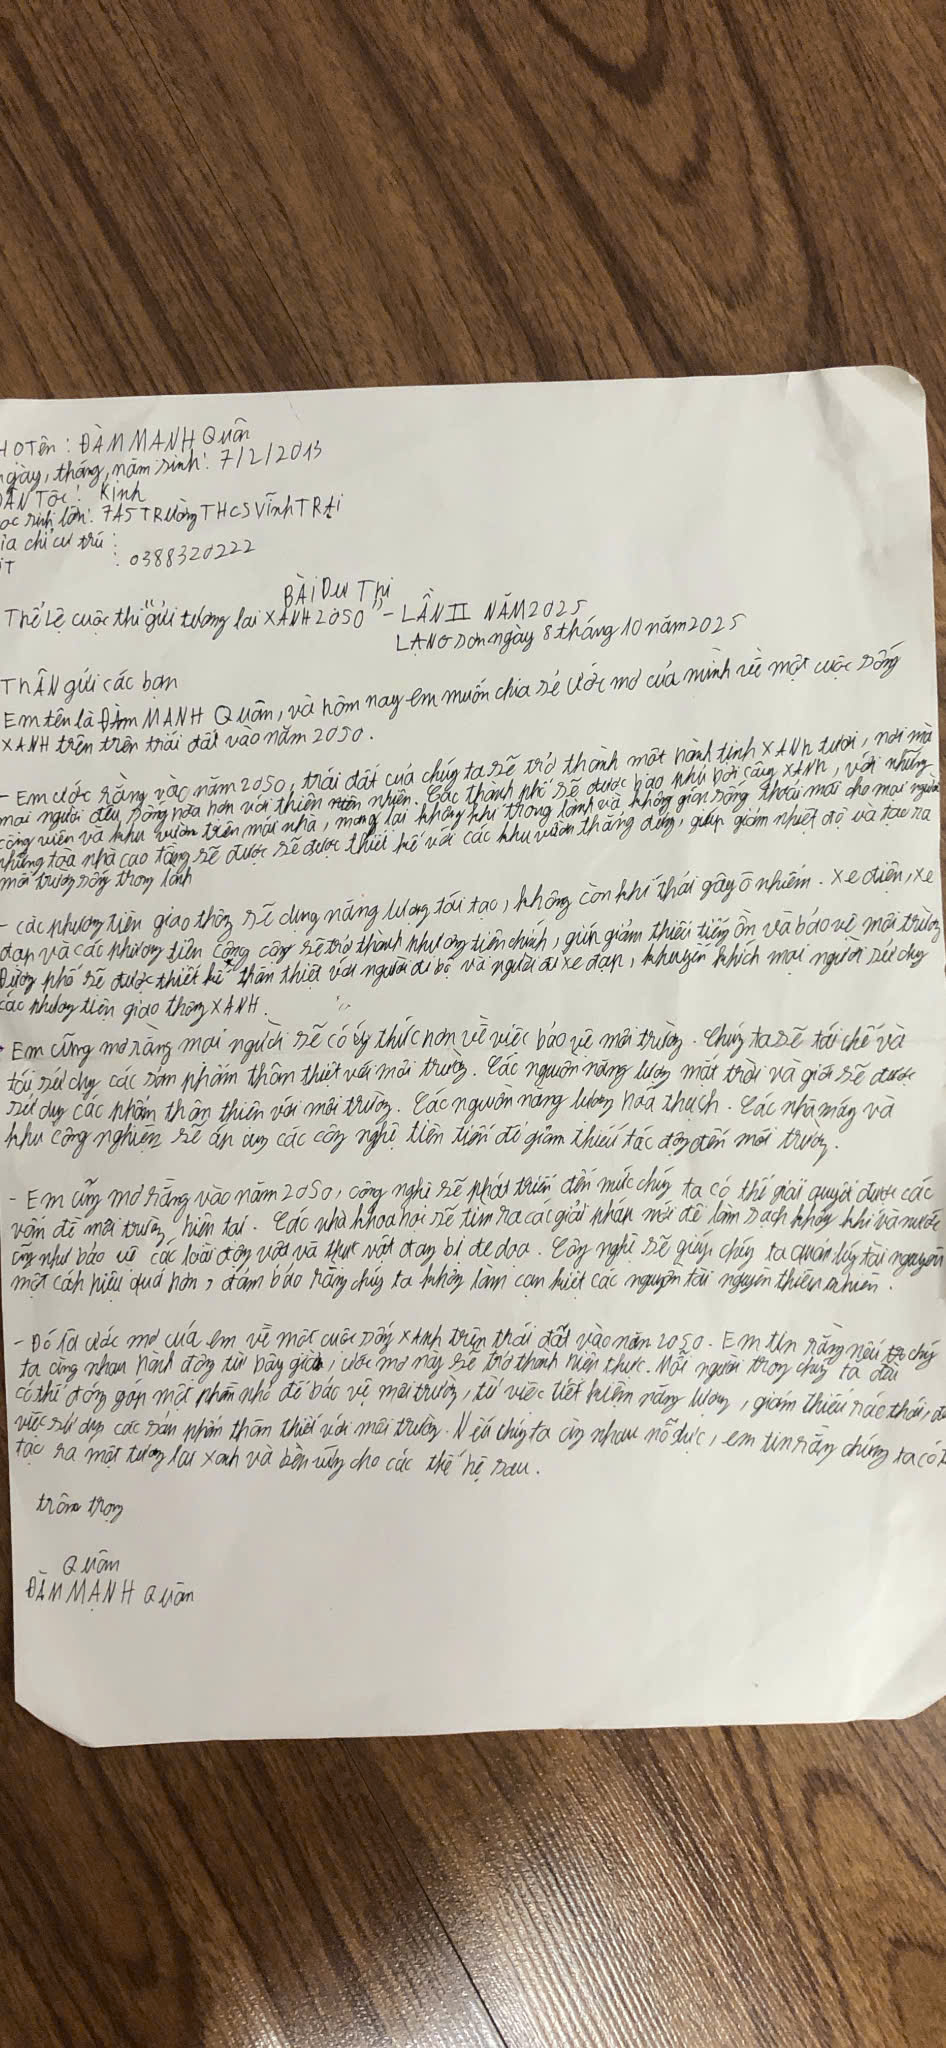 HỌ Tên: ĐÀM MẠNH Quân
ngày, tháng, năm sinh: 7/2/2013
DÂN Tộc: Kinh
học sinh lớp: 7A5 TRường THCS Vĩnh TRại
ĐỊa chỉ cư trú:
ĐT : 0388320222
BÀi Dự Thi
Thể Lệ cuộc thi "gửi tương lai XANH 2050" - LẦN II NĂM 2025
LẠNG Sơn ngày 8 tháng 10 năm 2025
THÂN gửi các bạn
Em tên là ĐÀM MẠNH Quân, và hôm nay em muốn chia sẻ ước mơ của mình về một cuộc sống
XANH trên trên trái đất vào năm 2050.
- Em ước rằng vào năm 2050, trái đất của chúng ta sẽ trở thành một hành tinh XANh tươi, nơi mà
mọi người đều sống hòa hơn với thiên nhiên. Các thành phố sẽ được bao phủ bởi cây XANh, với những
công viên và khu vườn trên mái nhà, mang lại không khí trong lành và không gian sống thoải mái cho mọi người
những tòa nhà cao tầng sẽ được sẽ được thiết kế với các khu vườn thẳng đứng, giúp giảm nhiệt độ và tạo ra
môi trường sống trong lành
- các phương tiện giao thông sẽ dụng năng lượng tái tạo, không còn khí thải gây ô nhiễm. Xe điện, xe
đạp và các phương tiện công cộng sẽ trở thành phương tiện chính, giúp giảm thiểu tiếng ồn và bảo vệ môi trường
Đường phố sẽ được thiết kế thân thiết với người đi bộ và người đi xe đạp, khuyến khích mọi người sử dụng
các phương tiện giao thông XANH.
- Em cũng mơ rằng mọi người sẽ có ý thức hơn về việc bảo vệ môi trường. Chúng ta sẽ tái chế và
tái sử dụng các sản phẩm thân thiết với môi trường. Các nguồn năng lượng mặt trời và gió sẽ được
sử dụng các phẩm thân thiên với môi trường. Các nguồn năng lượng hóa thạch. Các nhà máy và
khu công nghiệp sẽ áp dụng các công nghệ tiên tiến để giảm thiểu tác động đến môi trường.
- Em cũng mơ rằng vào năm 2050, công nghệ sẽ phát triển đến mức chúng ta có thể giải quyết được các
vấn đề môi trường hiện tại. Các nhà khoa học sẽ tìm ra các giải pháp mới để làm sạch không khí và nước
cũng như bảo vệ các loài động vật và thực vật đang bị đe dọa. Công nghệ sẽ giúp chúng ta quản lý tài nguyên
một cách hiệu quả hơn, đảm bảo rằng chúng ta không làm cạn kiệt các nguồn tài nguyên thiên nhiên.
- Đó là ước mơ của em về một cuộc sống xanh trên trái đất vào năm 2050. Em tin rằng nếu chúng
ta cùng nhau hành động từ bây giờ, ước mơ này sẽ trở thành hiện thực. Mỗi người trong chúng ta đều
có thể đóng góp một phần nhỏ để bảo vệ môi trường, từ việc tiết kiệm năng lượng, giảm thiểu rác thải,
việc sử dụng các sản phẩm thân thiết với môi trường. Nếu chúng ta cùng nhau nỗ lực, em tin rằng chúng ta có
tạo ra một tương lai xanh và bền vững cho các thế hệ sau.
trân trọng
Quân
ĐÀM MẠNH Quân